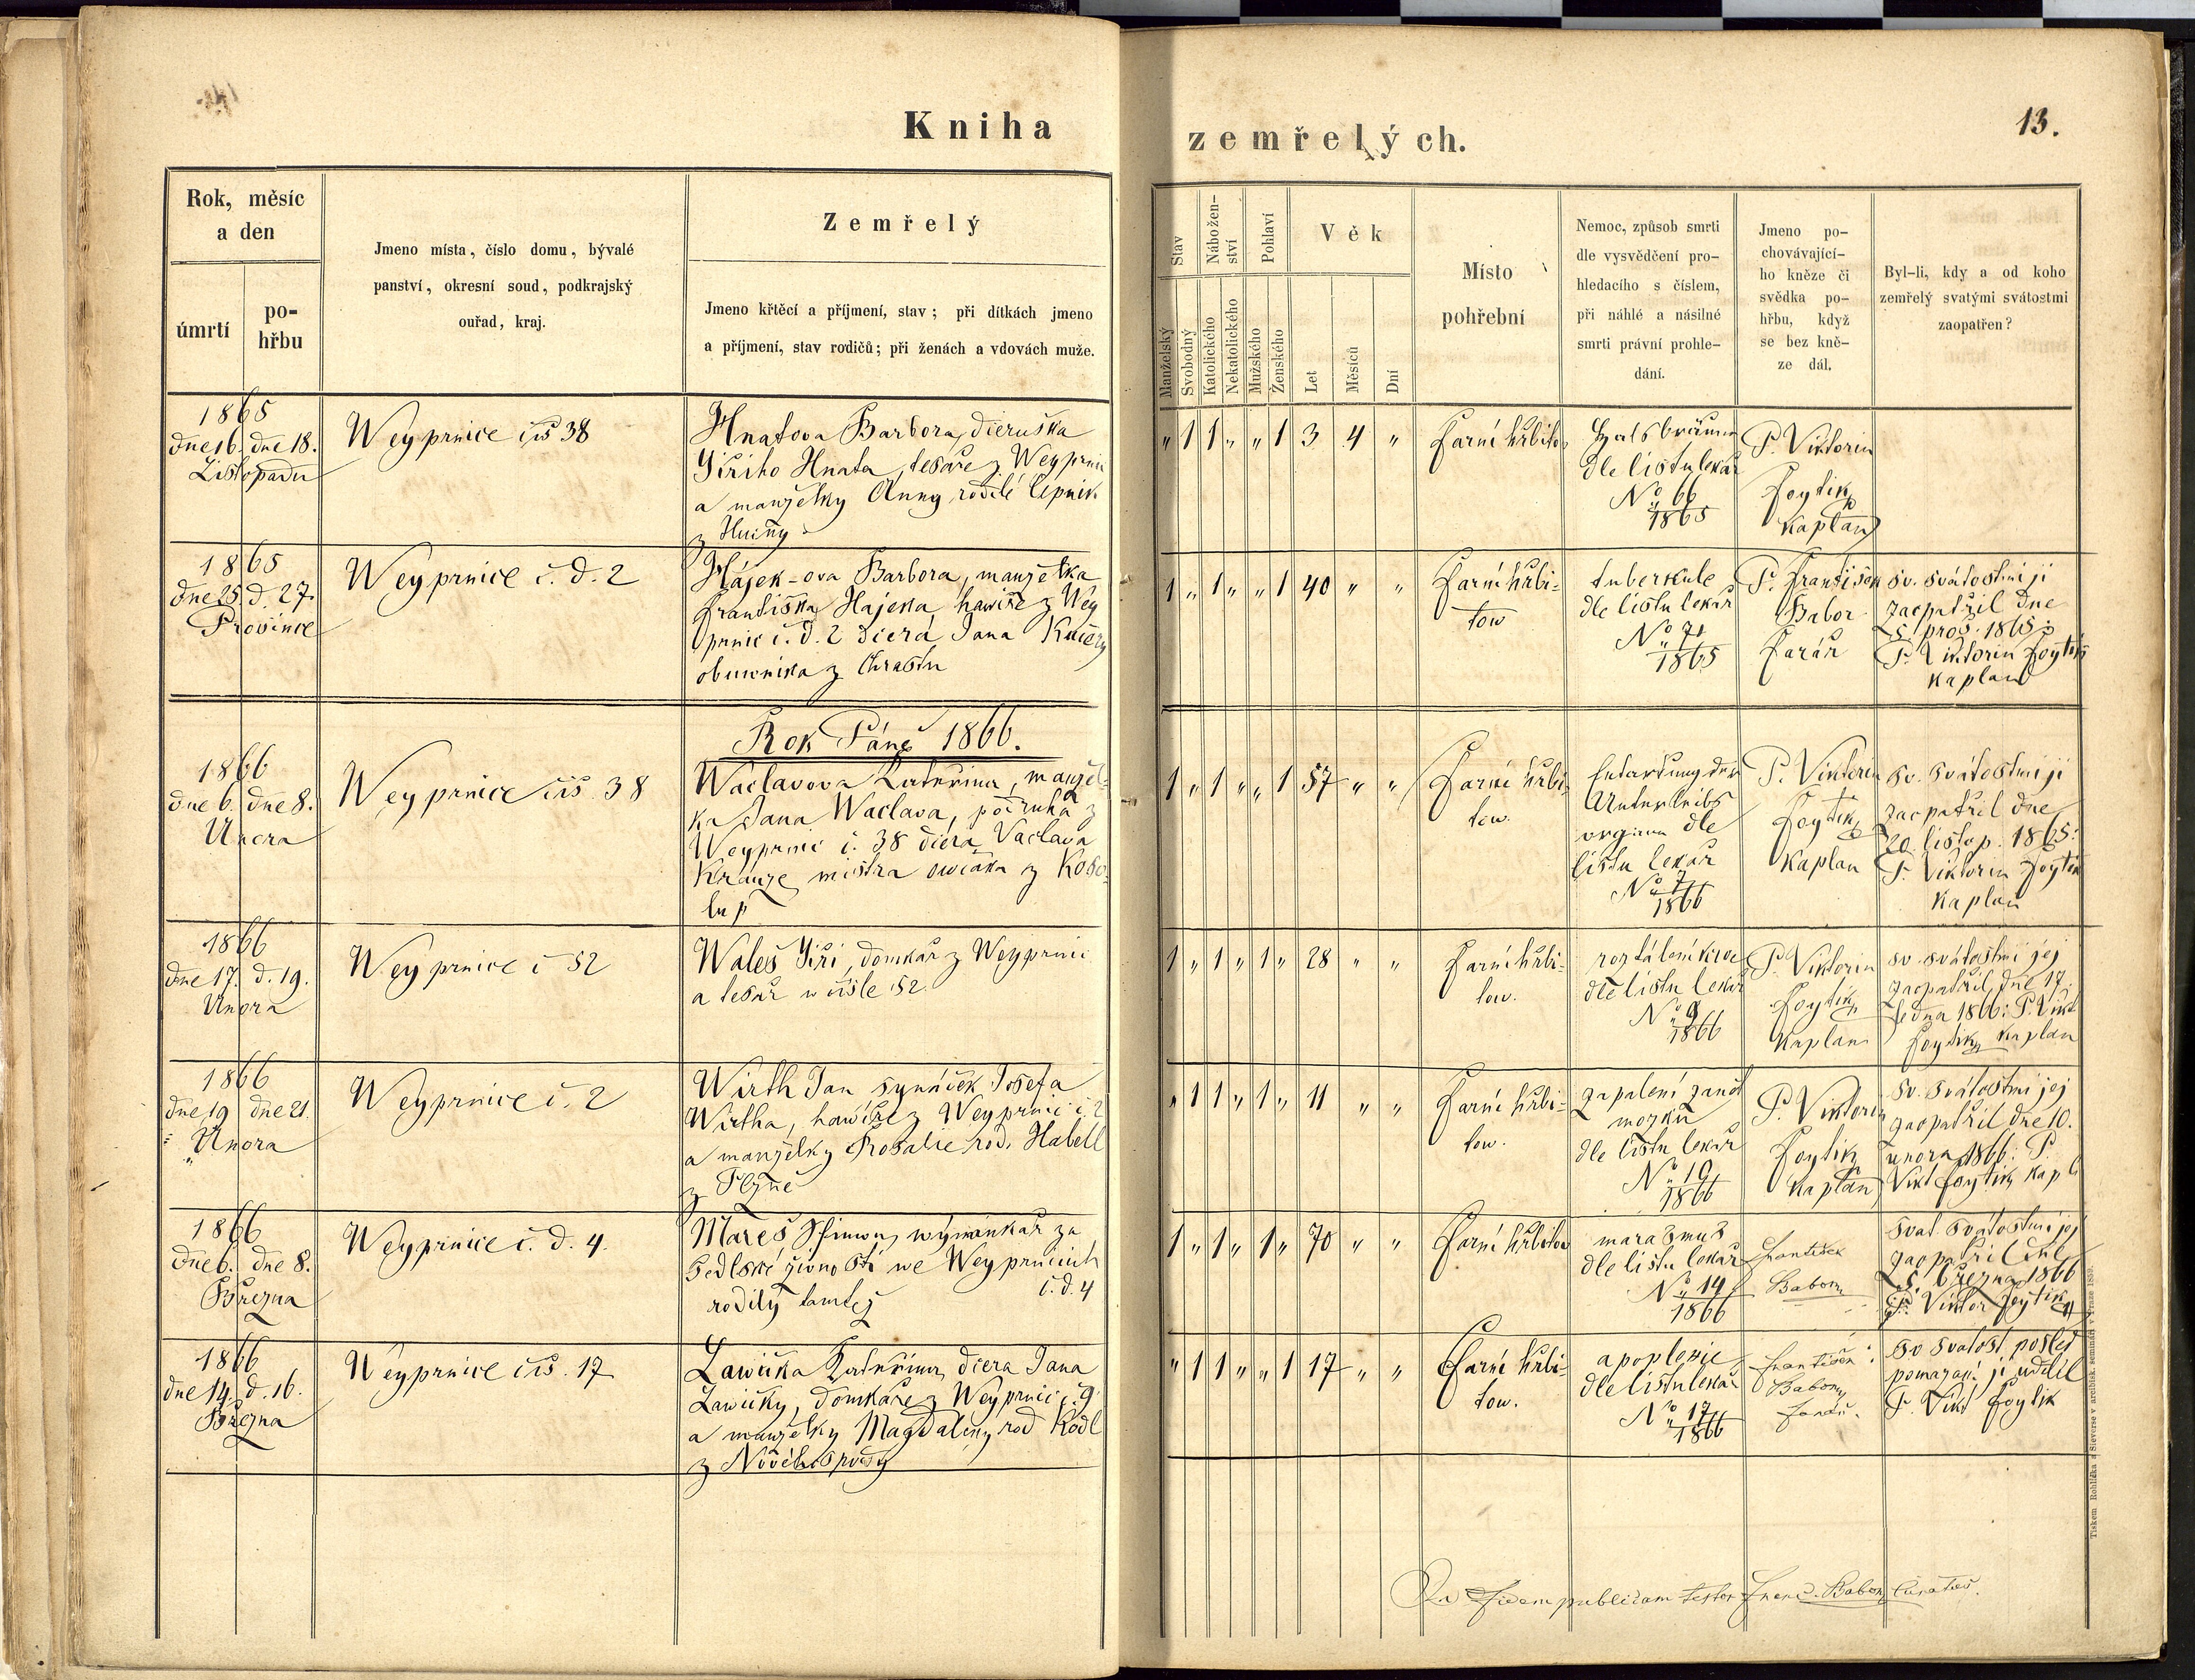 Kniha
zemřelých.
13.
Rok, měsíc
a den
úmrtí
po-
hřbu
Jmeno místa, číslo domu, bývalé
panství, okresní soud, podkrajský
ouřad, kraj.
Zemřelý
Jmeno křtěcí a příjmení, stav; při dítkách jmeno
a příjmení, stav rodičů; při ženách a vdovách muže.
Stav
Manželský
Svobodný
Nábožen-
ství
Katolického
Nekatolického
Pohlaví
Mužského
Ženského
Věk
Let
Měsíců
Dní
Místo
pohřební
Nemoc, způsob smrti
dle vysvědčení pro-
hledacího s číslem,
při náhlé a násilné
smrti právní prohle-
dání.
Jmeno po-
chovávající-
ho kněze či
svědka po-
hřbu, když
se bez kně-
ze dál.
Byl-li, kdy a od koho
zemřelý svatými svátostmi
zaopatřen?
1865
dne 16. dne 18.
Listopadu
Weyprnice čís 38
Hnatova Barbora, dceruška
Jiřího Hnata, tesaře z Weyprnic
a manželky Anny, rodilé Cepnik
z Hucňy
" 1 1 " " 1 3 4 "
Farní hřbitow
Halsbräune
dle listu lekař
No 66
1865
P. Viktorin
Foytik
Kaplan
1865
dne 25. d. 27.
Prosince
Weyprnice č. d. 2
Hájek-ova Barbora, manželka
Františka Hajeka hawíře z Wey
prnic č. d. 2 dcera Jana Kučery
obuwnika z Chrastu
1 " 1 " " 1 40 " "
Farní hřbi-
tow
tuberkule
dle listu lekař
No 71
1865
P. František
Babor
Farář
sv. svátostmi ji
zaopatřil dne
5 pros. 1865:
P. Viktorin Foytik
Kaplan
Rok Páně 1866.
1866
dne 6. dne 8.
Unora
Weyprnice čís. 38
Waclavova Kateřina, manžel-
ka Jana Waclava, podruha z
Weyprnic č. 38 dcera Vaclava
Krauze mistra owčaka z Koso-
lup
1 " 1 " " 1 57 " "
Farní hřbi-
tow.
Entartung der
Unterleibs
organe dle
listu lekař
No 7
1866
P. Viktorin
Foytik
Kaplan
sv. svátostmi ji
zaopatřil dne
20. listop. 1865:
P. Viktorin Foytik
Kaplan
1866
dne 17. d. 19.
Unora
Weyprnice č 52
Waleš Jiří, domkař z Weyprnic
a tesař w čísle 52
1 " 1 " 1 " 28 " "
Farní hřbi-
tow.
roztálení krve
dle listu lekař
No 9
1866
P. Viktorin
Foytik
Kaplan
sv. svátostmi jej
zaopatřil dne 17.
ledna 1866: P. Vikt
Foytik kaplan
1866
dne 19 dne 21.
Unora
Weyprnice č. 2
Wirth Jan synáček Josefa
Wirtha, hawíře z Weyprnic č. 2
a manželky Rosalie rod. Habell
z Plzně
" 1 1 " 1 " 11 " "
Farní hřbi-
tow.
zapalení
mozku
dle listu lekař
No 10
1866
P. Viktorin
Foytik
Kaplan
sv. svátostmi jej
zaopatřil dne 10.
unora 1866: P.
Vikt Foytik kapl
1866
dne 6. dne 8.
Března
Weyprnice č. d. 4
Mareš Šimon, wýminkař za
Sedlské žiwnosti we Weyprnicích
č. d. 4
rodilý tamtéž
1 " 1 " 1 " 70 " "
Farní hřbitow
marasmus
dle listu lekař
No 14
1866
František
Babor
Svat. Svátostmi jej
zaopatřil dne
5. března 1866
P. Viktor Foytik
1866
dne 14. d. 16.
Března
Weyprnice čís. 17
Lawička Kateřina, dcera Jana
Lawičky, domkaře z Weyprnic č. 9
a manželky Magdaleny rod Kodl
z Novéhospody
" 1 1 " " 1 17 " "
Farní hřbi-
tow.
apoplexie
dle listu lekař
No 17
1866
František
Babor
farář.
sv svatost posled
pomazání jí udělil
P. Vikt Foytik
Ad fidem publicam testor Franc. Babor, Curatus.
Tiskem Rohlíčka a Sieverse v arcibisk. semináři v Praze 1859.